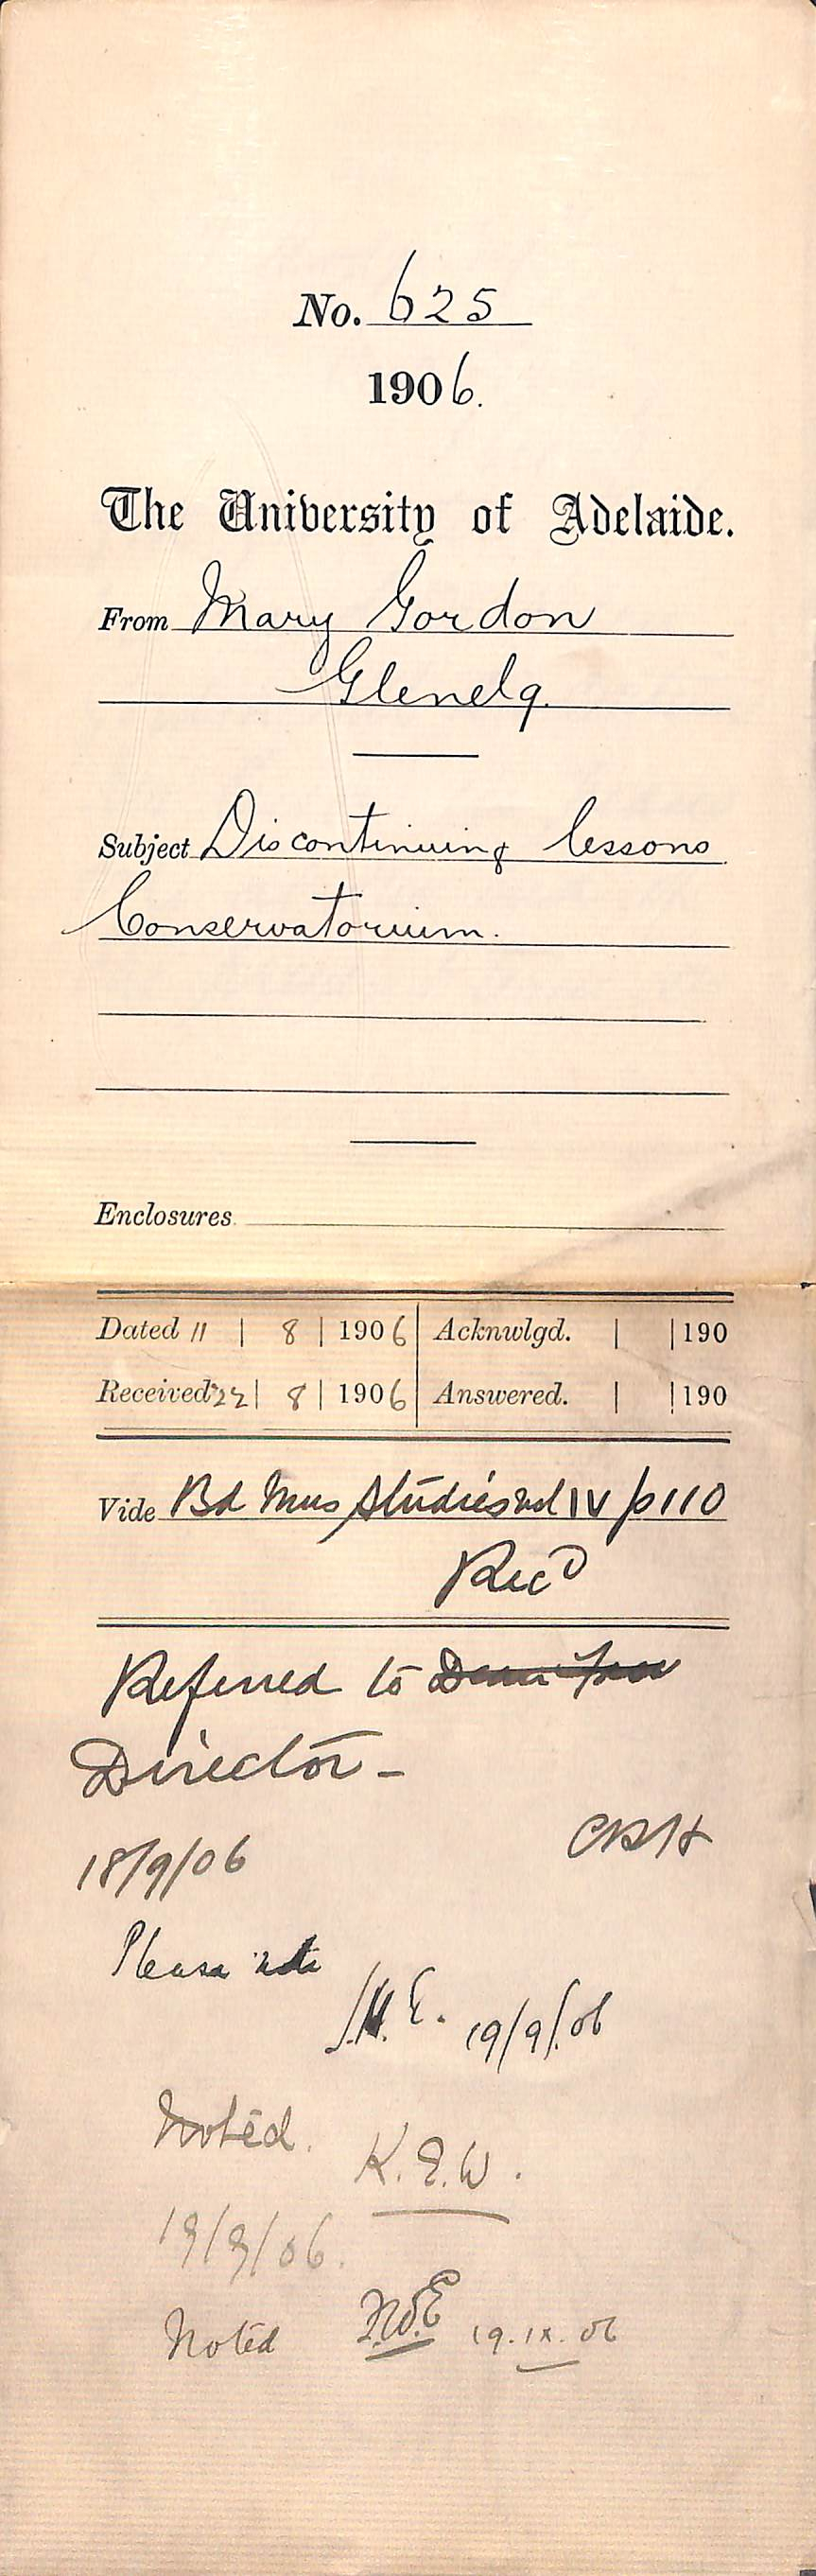 No. 625
1906.
The University of Adelaide.
From Mary Gordon
Glenelg.
Subject Discontinuing lessons
Conservatorium.
Enclosures
Dated 11 | 8 | 1906 Acknwlgd. | |190
Received 22 | 8 | 1906 Answered. | |190
Vide Bd Mus Studies vol IV p110
Recd
Referred to
Director-
CRH
18/9/06
Please note
J.M.E. 19/9/.06
Noted. K.E.W.
19/9/06.
Noted 19.IX.06